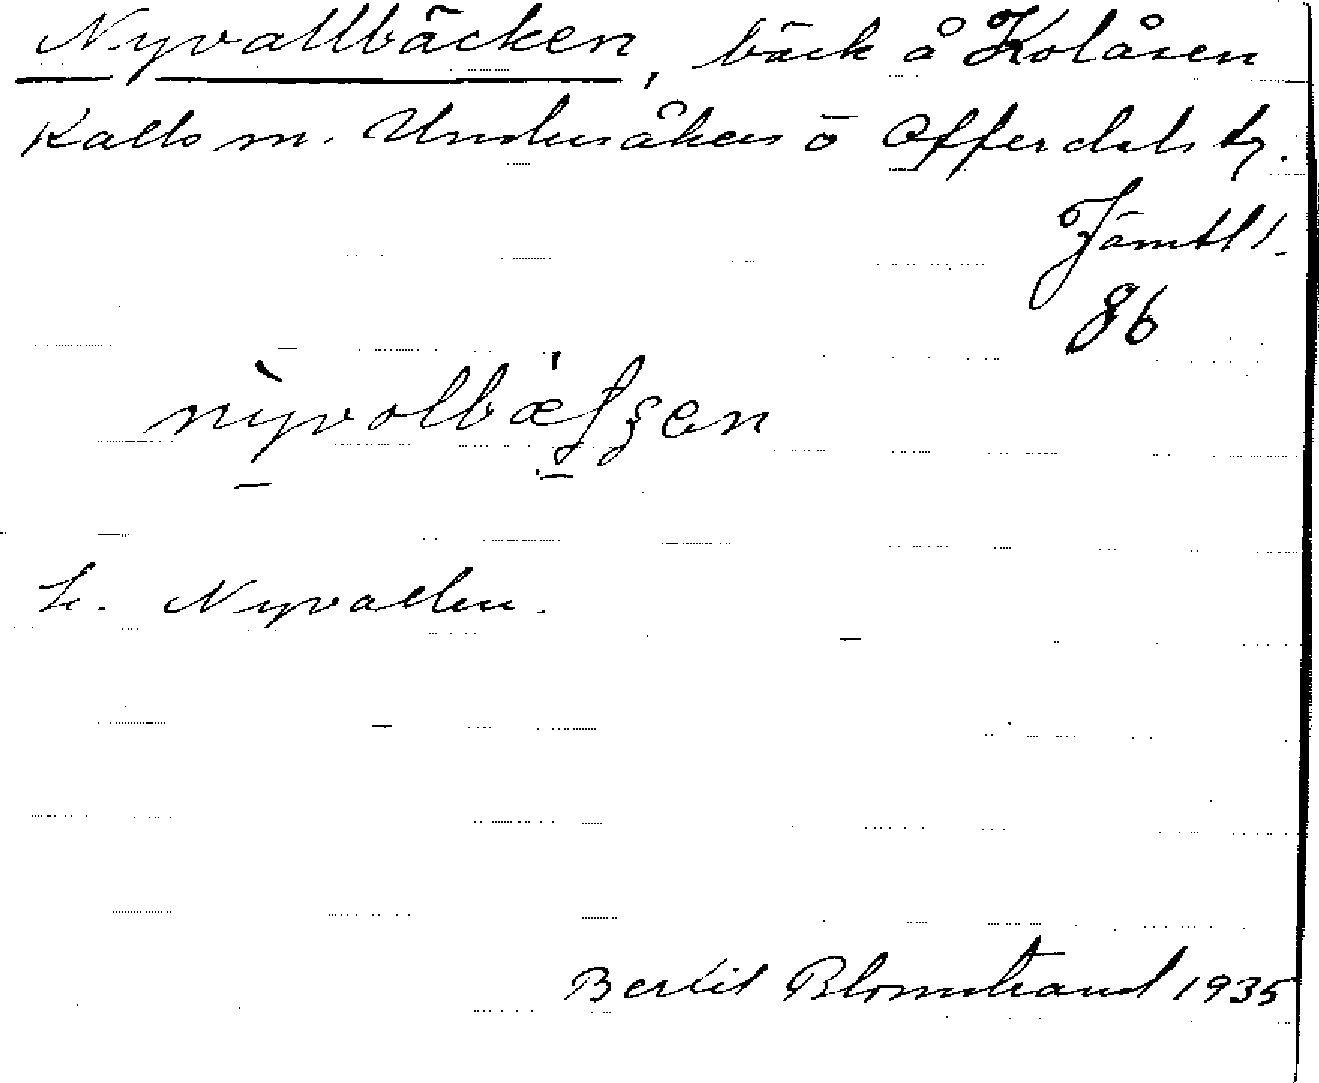 Nyvallbäcken, bäck å Kolåsen
Kalls sn. Undersåkers o Offerdals tg.
Jämtl l.
86
nỳvolbæʃʒen
L. Nyvallen.
Bertil Blomstrand 1935